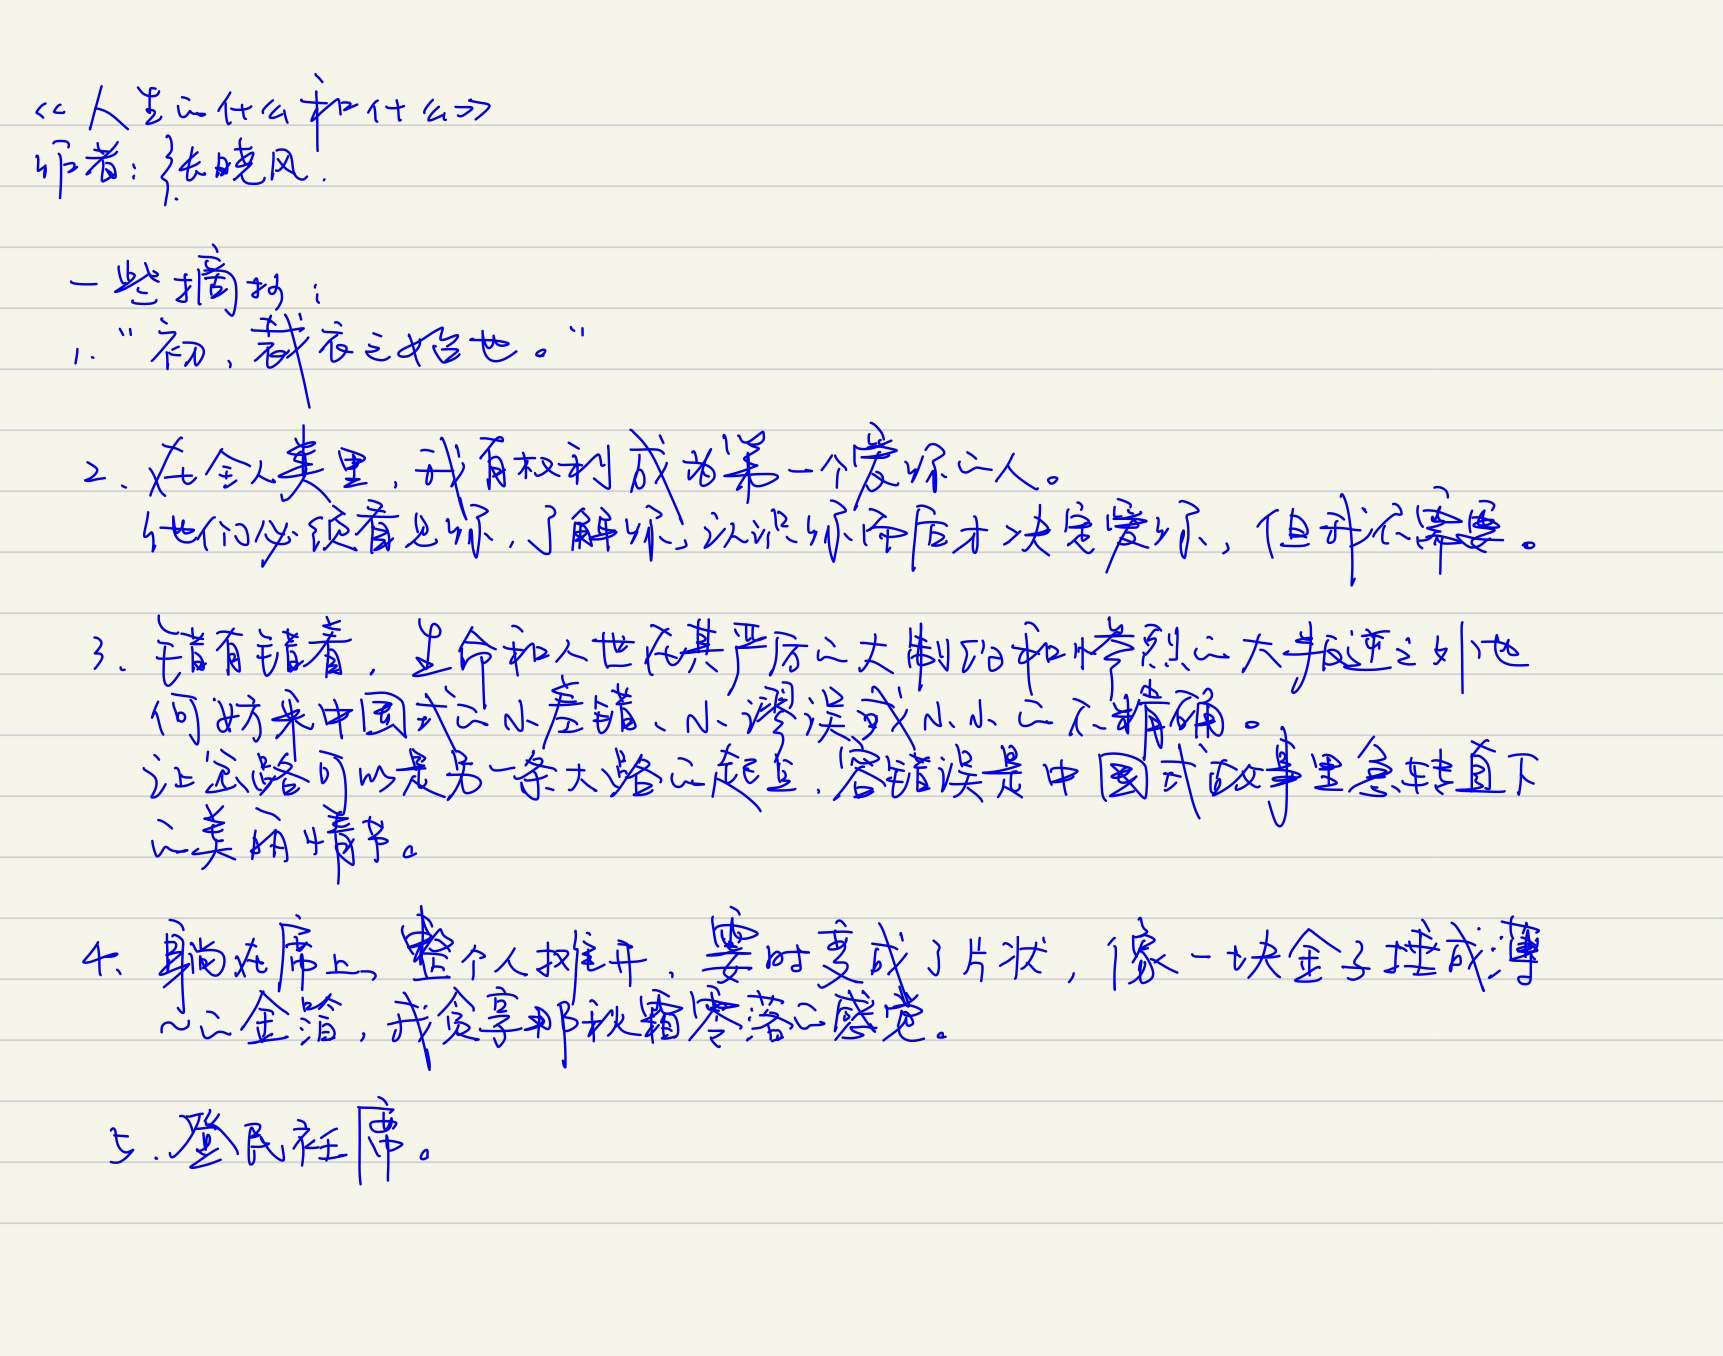 《人生的什么和什么》
作者：张晓风.
一些摘抄：
1. “初，裁衣之始也。”
2. 在全人类里，我有权利成为第一个爱你的人。
他们必须看见你，了解你，认识你而后才决定爱你，但我不需要。
3. 错有错着，生命和人世在其严厉的大制约和惨烈的大叛逆之外也
何妨来中国式的小差错、小谬误或小小的不精确。
让岔路可以是另一条大路的起点，容错误是中国式故事里急转直下
的美丽情节。
4、躺在席上，整个人摊开，霎时变成了片状，像一块金子捶成薄
~的金箔，我贪享那秋霜零落的感觉。
5. 登民衽席。